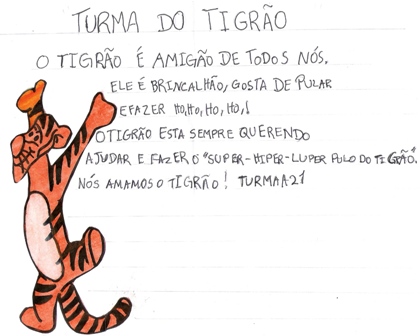 TURMA DO TIGRÃO
O TIGRÃO É AMIGÃO DE TODOS NÓS.
ELE É BRINCALHÃO, GOSTA DE PULAR
E FAZER HO, HO, HO, HO,!
O TIGRÃO ESTA SEMPRE QUERENDO
AJUDAR E FAZER O "SUPER-HIPER-LUPER PULO DO TIGRÃO".
NÓS AMAMOS O TIGRÃO! TURMA A21